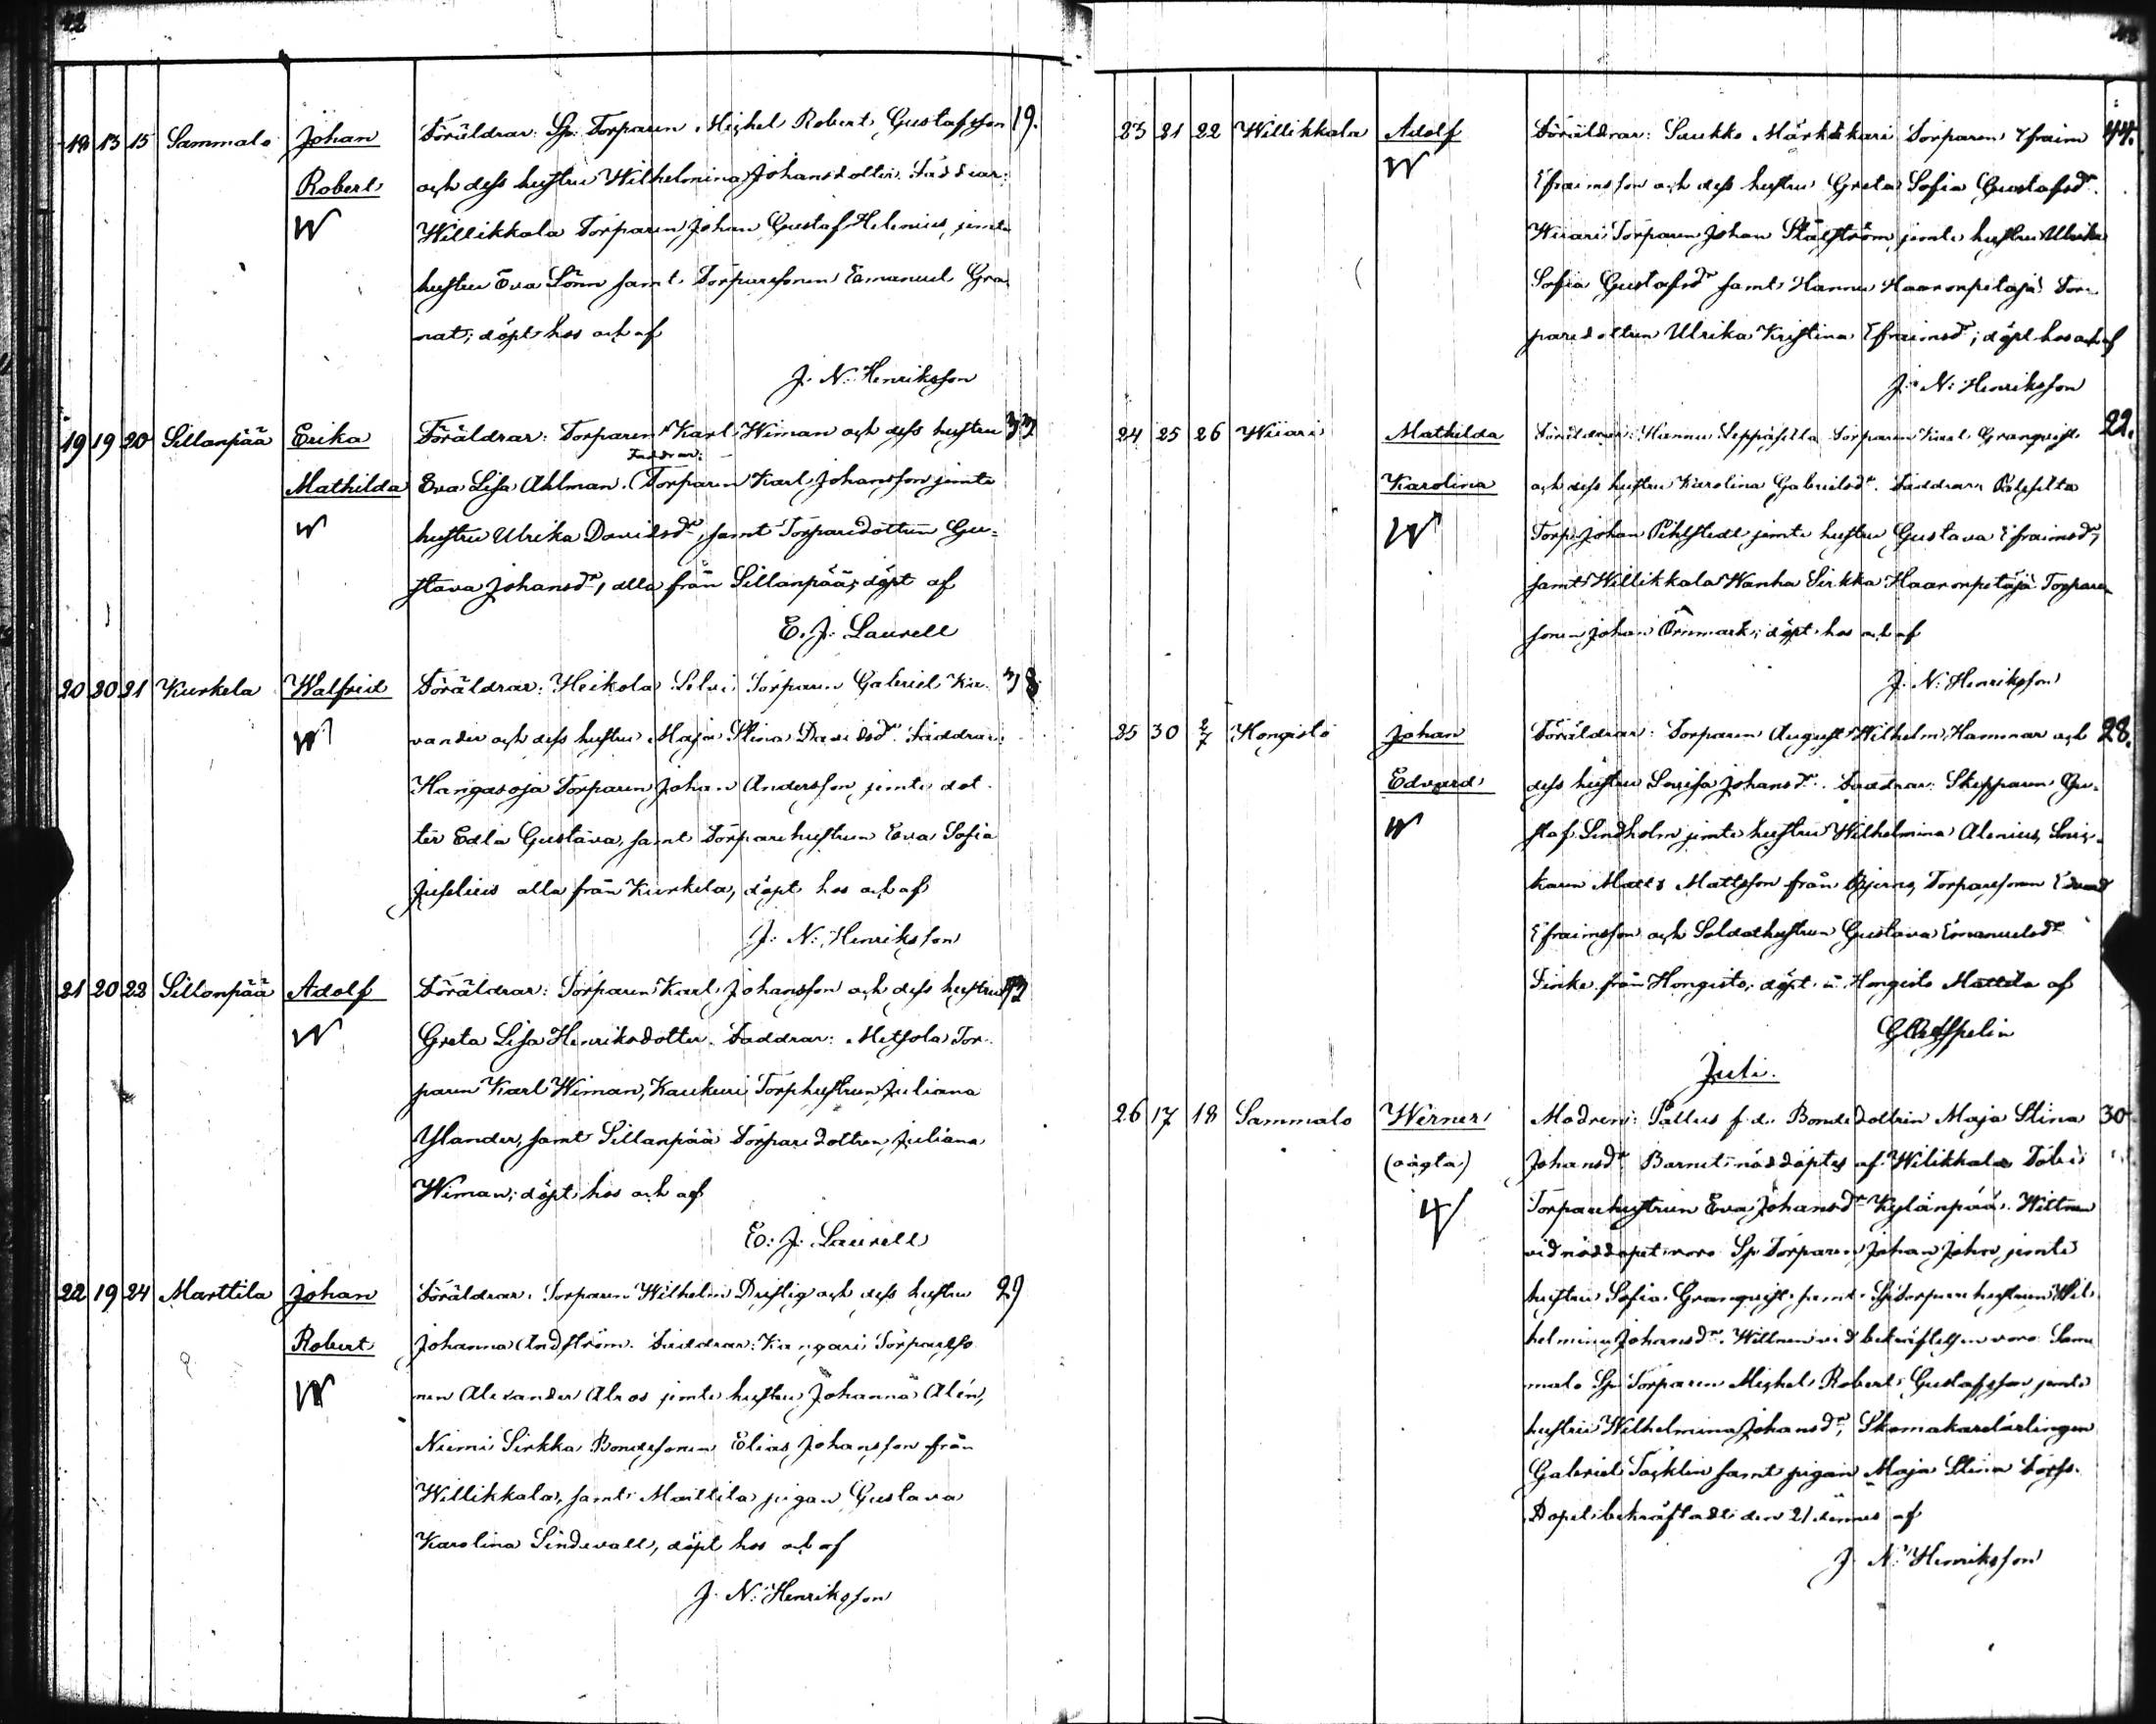 18 13 15 Sammalo Johan Föräldrar: Sp. Torparen Michel Robert Gustafsson 19.
Robert och dess hustru Wilhelmina Johansdotter. Faddrar:
W Willikkala Torparen Johan Gustaf Helenius jemte
hustru Eva Lönn samt Torparesonen Emanuel Gra-
nat; döpt hos och af
J. N. Henriksson
19 19 20 Sillanpää Erika Föräldrar: Torparen Karl Wiman och dess hustru 32
Faddrar:
Mathilda Eva Lisa Ahlman. (Torparen Karl Johansson jemte
W hustru Ulrika Davidsdr, samt Torparedottren Gu-
stava Johansdr, alla från Sillanpää; döpt af
E. J. Laurell
20 20 21 Kurkela Walfrid Föräldrar: Heikola Torparen Gabriel
W vander och dess hustru Maja Stina Davidsdr. Faddrar:
Hangasoja Torparen Johan Andersson jemte dot-
ter Edla Gustava, samt Torparehustrun Eva Sofia
Juselius alla från Kurkela, döpt hos och af
J. N. Henriksson
21 20 22 Sillanpää Adolf Föräldrar: Torparen Karl Johansson och dess hustru
W Greta Lisa Henriksdotter. Faddrar: Metsola Tor-
paren Karl Wiman, Kaukuri Torphustrun Juliana
Ylander, samt Sillanpää Torparedottren Juliana
Wiman; döpt hos och af
E. J. Laurell
22 19 24 Marttila Johan Föräldrar: Torparen Wilhelm Dristig och dess hustru 29
Robert Johanna Lindström. Faddrar: Kangari Torpareso-
W nen Alexander Alros jemte hustru Johanna Alén,
Niemi Sirkka Bondesonen Elias Johansson från
Willikkala, samt Marttila pigan Gustava
Karolina Lindevall, döpt hos och af
J. N. Henriksson
23 21 22 Willikkala Adolf Föräldrar: Saukko Torparen Efraim 44.
W Efraimsson och dess hustru Greta Sofia Gustafsdr.
Wiiari Torparen Johan Stålström jemte hustru Ulrika
Sofia Gustafsdr samt Hannu Haaronpetäjä Tor-
paredottren Ulrika Kristina Efraimsdr; döpt hos och af
J. N. Henriksson
24 25 26 Wiiari Mathilda Föräldrar: Hannu Leppäsilta Torparen Karl Granqvist 22.
Karolina och dess hustru Karolina Gabrielsdr. Faddrar:
W Torp. Johan Pihlstedt jemte hustru Gustava Efraimsdr,
samt Willikkala Wanha Sirkka Haaronpetäjä Torpare-
sonen Johan Örnmark; döpt hos och af
J. N. Henriksson
25 30 2/7 Hongisto Johan Föräldrar: Torparen August Wilhelm Hammar och 28.
Edvard dess hustru Lovisa Johansdr. Faddrar: Skepparen Gu-
W staf Lindholm jemte hustru Wilhelmina Alenius,
Matts Mattsson från Bjerno, Torparesonen Edvard
Efraimsson och Soldathustrun Gustava Emanuelsdr
från Hongisto; döpt i Hongisto Mattila af
Juli.
26 17 18 Sammalo Werner Modren: Pallus f.d. Bondedottren Maja Stina 30
(oägta) Johansdr. Barnet nöddöptes af Wilikkala
Torparehustrun Eva Johansdr Kylänpää. Wittnen
vid nöddopet voro Sp. Torparen Johan John jemte
hustru Sofia Granqvist samt Sp. Torparehustrun Wil-
helmina Johansdr. Wittnen vid bekräftelsen voro Sam-
malo Sp. Torparen Michel Robert Gustafsson jemte
hustru Wilhelmina Johansdr, Skomakarelärlingen
Gabriel Täcklin samt pigan Maja Stina
Dopet bekräftadt den 21 dennes af
J. N. Henriksson